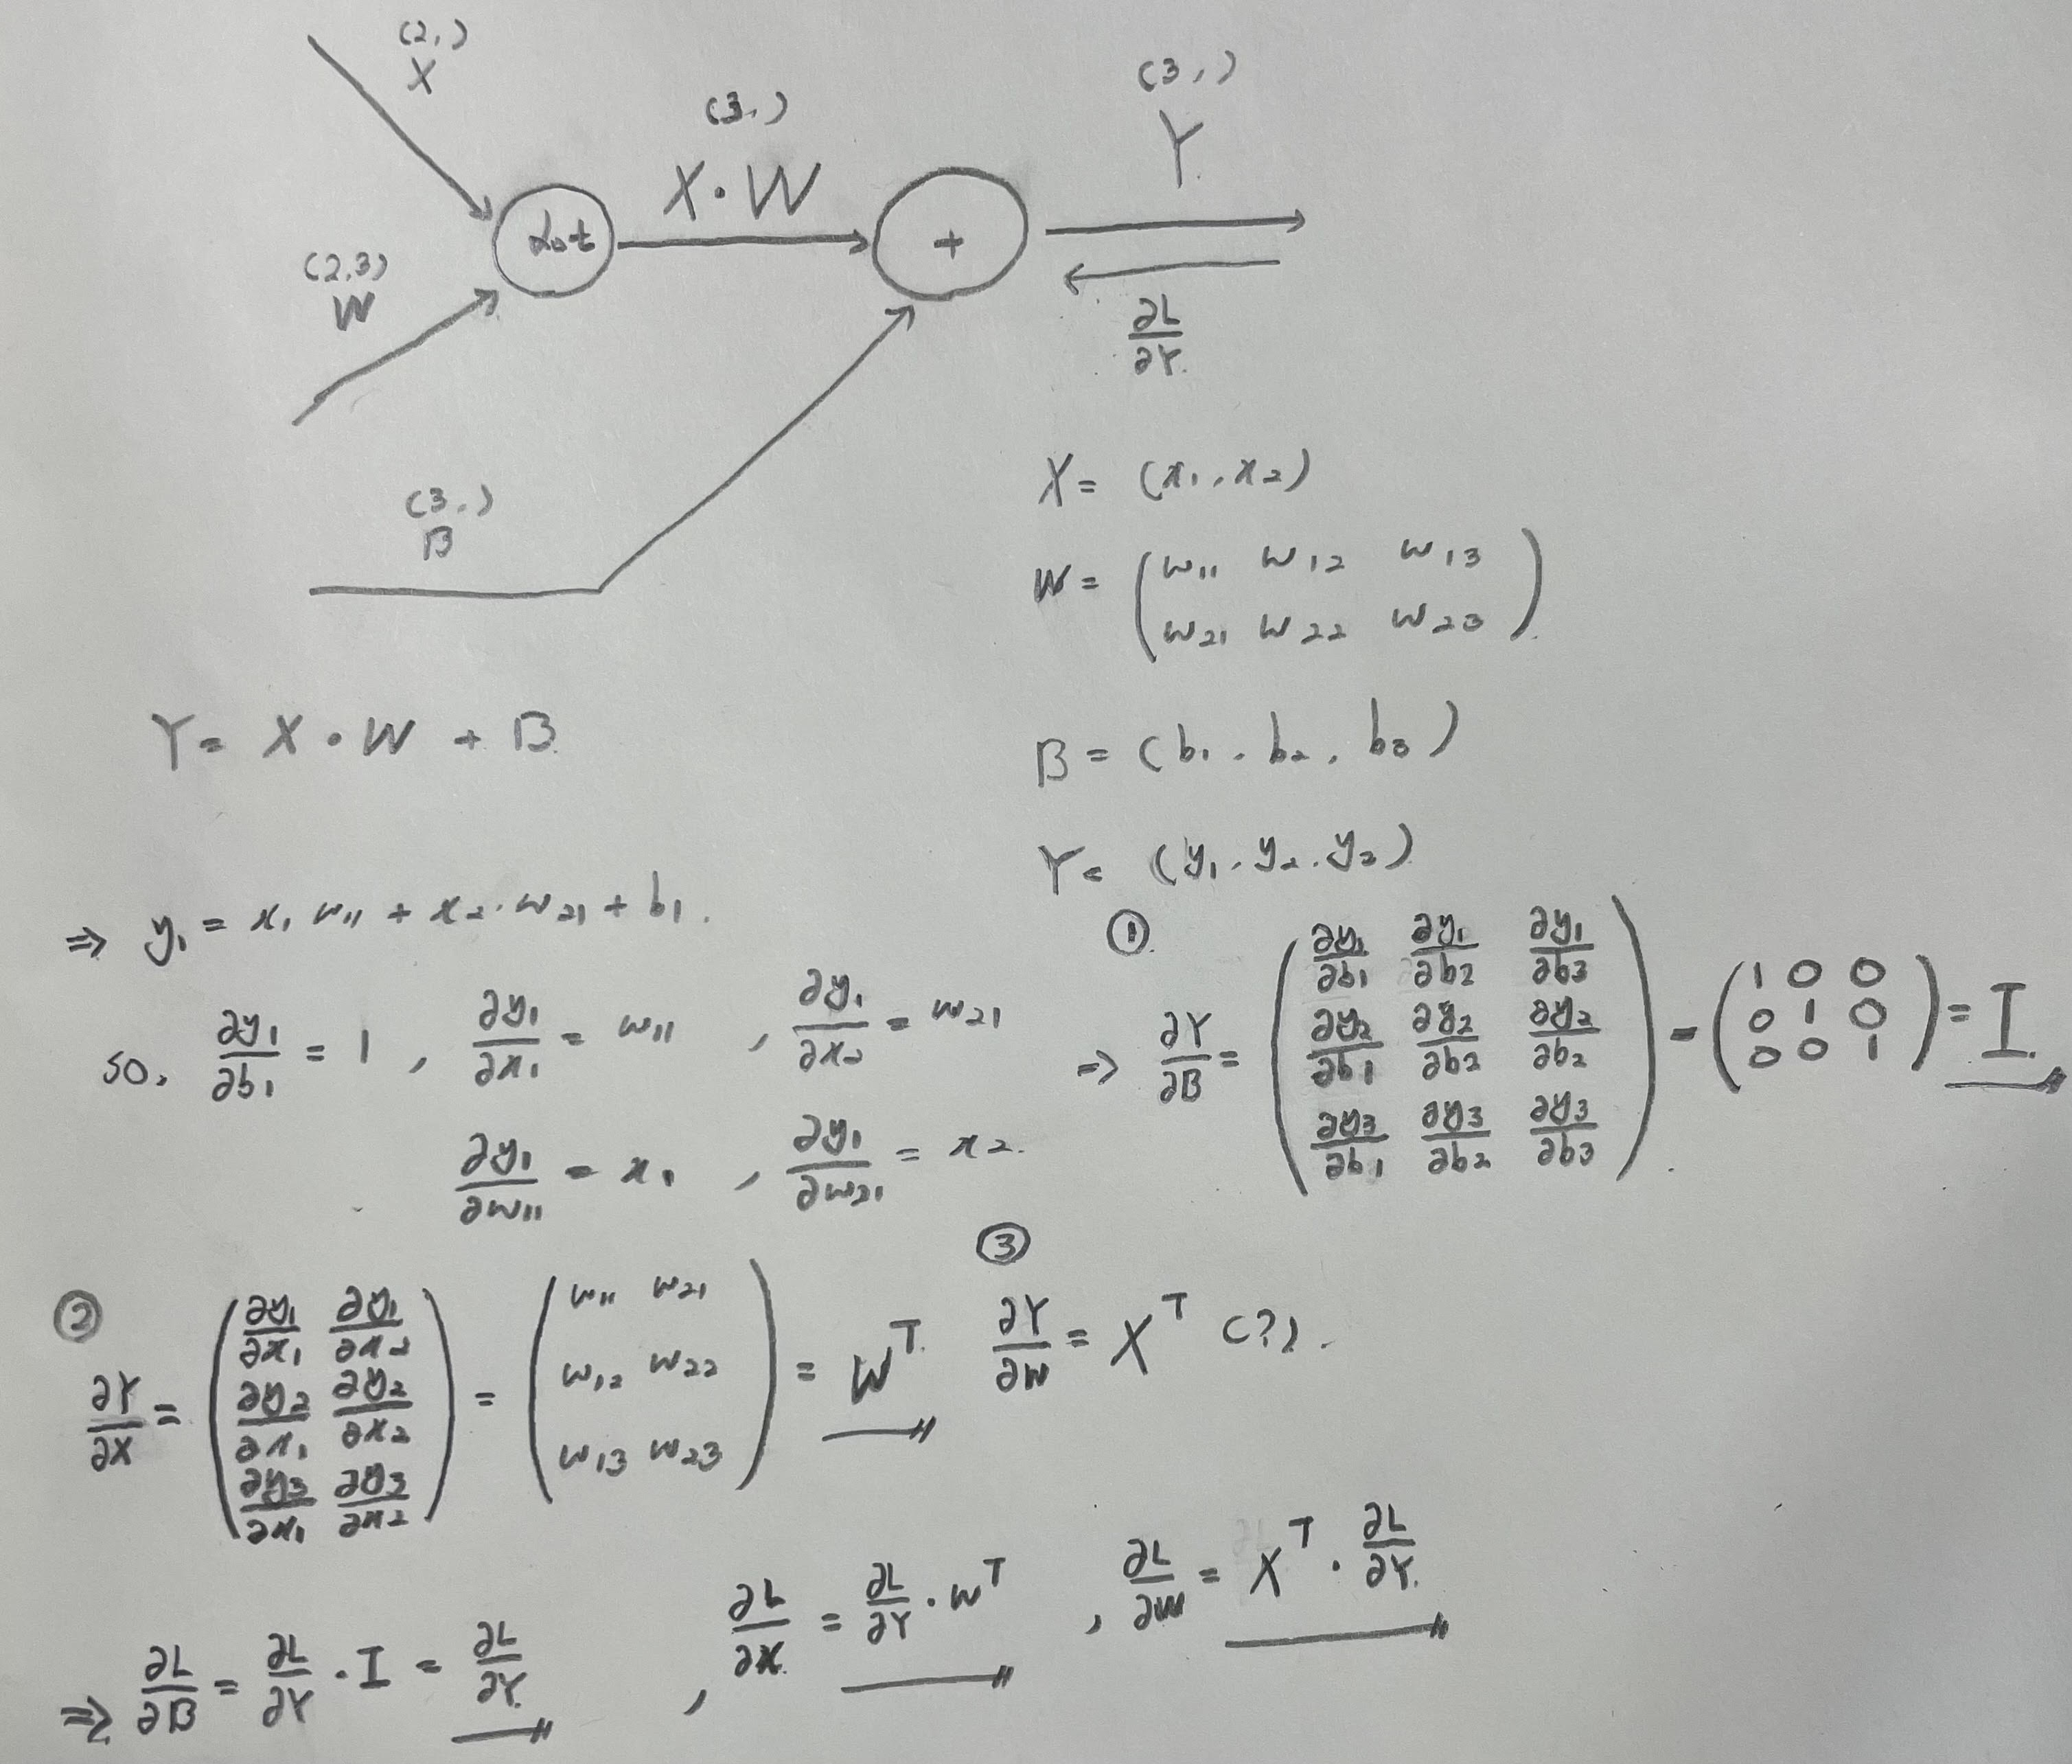 (2,)
X
(3,)
X・W
(3,)
Y
dot
+
(2,3)
W
∂L/∂Y
(3,)
B
X = (x₁, x₂)
W = ( w₁₁ w₁₂ w₁₃
w₂₁ w₂₂ w₂₃ )
Y = X・W + B
B = (b₁, b₂, b₃)
Y = (y₁, y₂, y₃)
⇒ y₁ = x₁w₁₁ + x₂・w₂₁ + b₁.
so, ∂y₁/∂b₁ = 1, ∂y₁/∂x₁ = w₁₁, ∂y₁/∂x₂ = w₂₁
∂y₁/∂w₁₁ = x₁, ∂y₁/∂w₂₁ = x₂.
①
⇒ ∂Y/∂B = ( ∂y₁/∂b₁ ∂y₁/∂b₂ ∂y₁/∂b₃
∂y₂/∂b₁ ∂y₂/∂b₂ ∂y₂/∂b₂
∂y₃/∂b₁ ∂y₃/∂b₂ ∂y₃/∂b₃ ) = ( 1 0 0
0 1 0
0 0 1 ) = I
②
∂Y/∂X = ( ∂y₁/∂x₁ ∂y₁/∂x₂
∂y₂/∂x₁ ∂y₂/∂x₂
∂y₃/∂x₁ ∂y₃/∂x₂ ) = ( w₁₁ w₂₁
w₁₂ w₂₂
w₁₃ w₂₃ ) = Wᵀ
③
∂Y/∂W = Xᵀ (?).
⇒ ∂L/∂B = ∂L/∂Y・I = ∂L/∂Y, ∂L/∂X = ∂L/∂Y・Wᵀ, ∂L/∂W = Xᵀ・∂L/∂Y